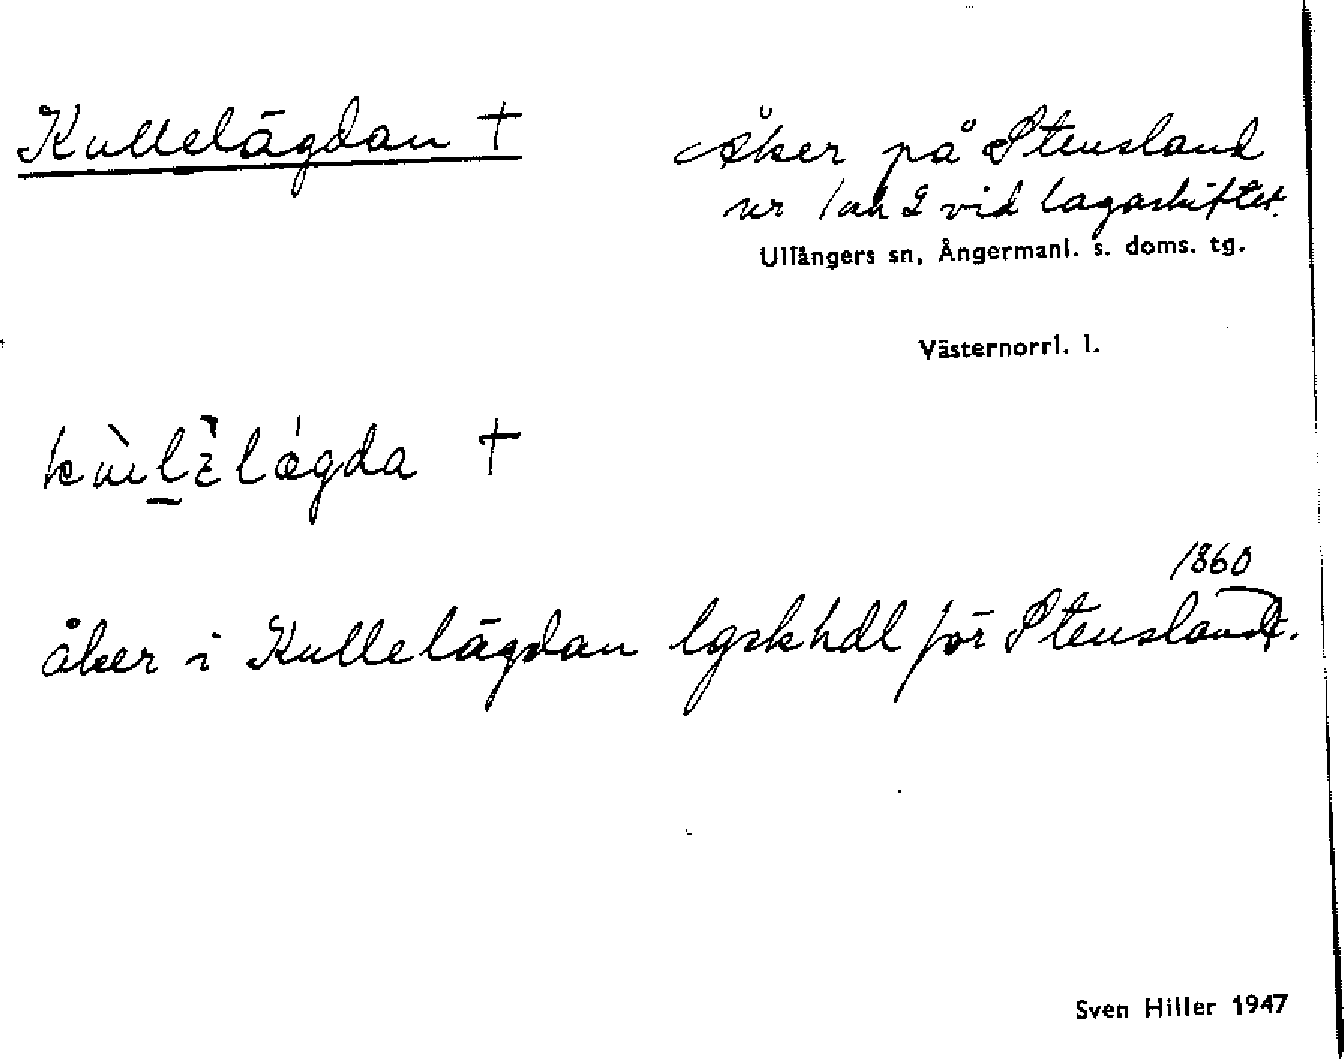 Kullelägdan †
Åker på Stensland
nr 1 och 2 vid lagaskiftet.
Ullångers sn, Ångermanl. s. doms. tg.
Västernorrl. l.
†
1860
åker i Kullelägdan lgskhdl för Stensland.
Sven Hiller 1947